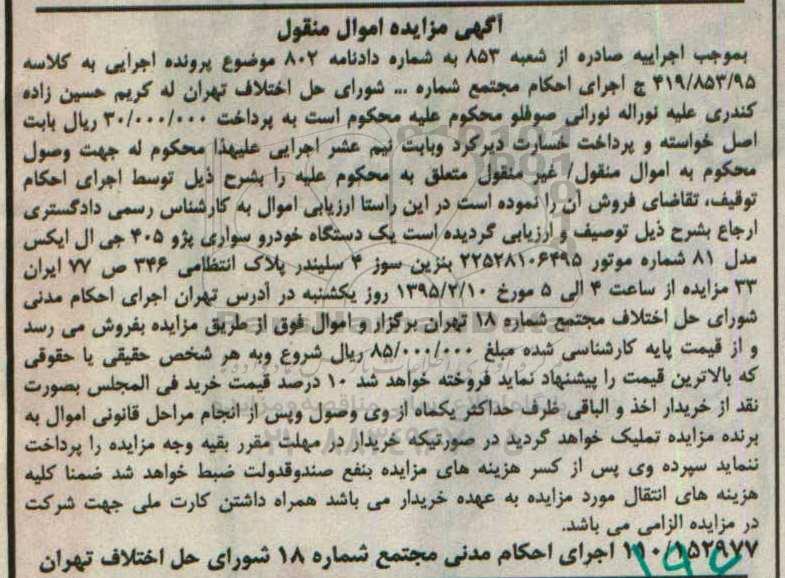 آگهی مزایده اموال منقول
بموجب اجراییه صادره از شعبه ۸۵۳ به شماره دادنامه ۸۰۲ موضوع پرونده اجرایی به کلاسه
۴۱۹/۸۵۳/۹۵ ج اجرای احکام مجتمع شماره ... شورای حل اختلاف تهران له کریم حسین زاده
کندری علیه نوراله نورانی صوفلو محکوم علیه محکوم است به پرداخت ۳۰/۰۰۰/۰۰۰ ریال بابت
اصل خواسته و پرداخت خسارت دیرکرد وبابت نیم عشر اجرایی علیهذا محکوم له جهت وصول
محکوم به اموال منقول/ غیر منقول متعلق به محکوم علیه را بشرح ذیل توسط اجرای احکام
توقیف، تقاضای فروش آن را نموده است در این راستا ارزیابی اموال به کارشناس رسمی دادگستری
ارجاع بشرح ذیل توصیف و ارزیابی گردیده است یک دستگاه خودرو سواری پژو ۴۰۵ جی ال ایکس
مدل ۸۱ شماره موتور ۲۲۵۲۸۱۰۶۴۹۵ بنزین سوز ۴ سلیندر پلاک انتظامی ۳۴۶ ص ۷۷ ایران
۳۳ مزایده از ساعت ۴ الی ۵ مورخ ۱۳۹۵/۲/۱۰ روز یکشنبه در آدرس تهران اجرای احکام مدنی
شورای حل اختلاف مجتمع شماره ۱۸ تهران برگزار و اموال فوق از طریق مزایده بفروش می رسد
و از قیمت پایه کارشناسی شده مبلغ ۸۵/۰۰۰/۰۰۰ ریال شروع وبه هر شخص حقیقی یا حقوقی
که بالاترین قیمت را پیشنهاد نماید فروخته خواهد شد ۱۰ درصد قیمت خرید فی المجلس بصورت
نقد از خریدار اخذ و الباقی ظرف حداکثر یکماه از وی وصول وپس از انجام مراحل قانونی اموال به
برنده مزایده تملیک خواهد گردید در صورتیکه خریدار در مهلت مقرر بقیه وجه مزایده را پرداخت
ننماید سپرده وی پس از کسر هزینه های مزایده بنفع صندوقدولت ضبط خواهد شد ضمنا کلیه
هزینه های انتقال مورد مزایده به عهده خریدار می باشد همراه داشتن کارت ملی جهت شرکت
در مزایده الزامی می باشد.
۱۱۰/۱۵۲۹۷۷ اجرای احکام مدنی مجتمع شماره ۱۸ شورای حل اختلاف تهران